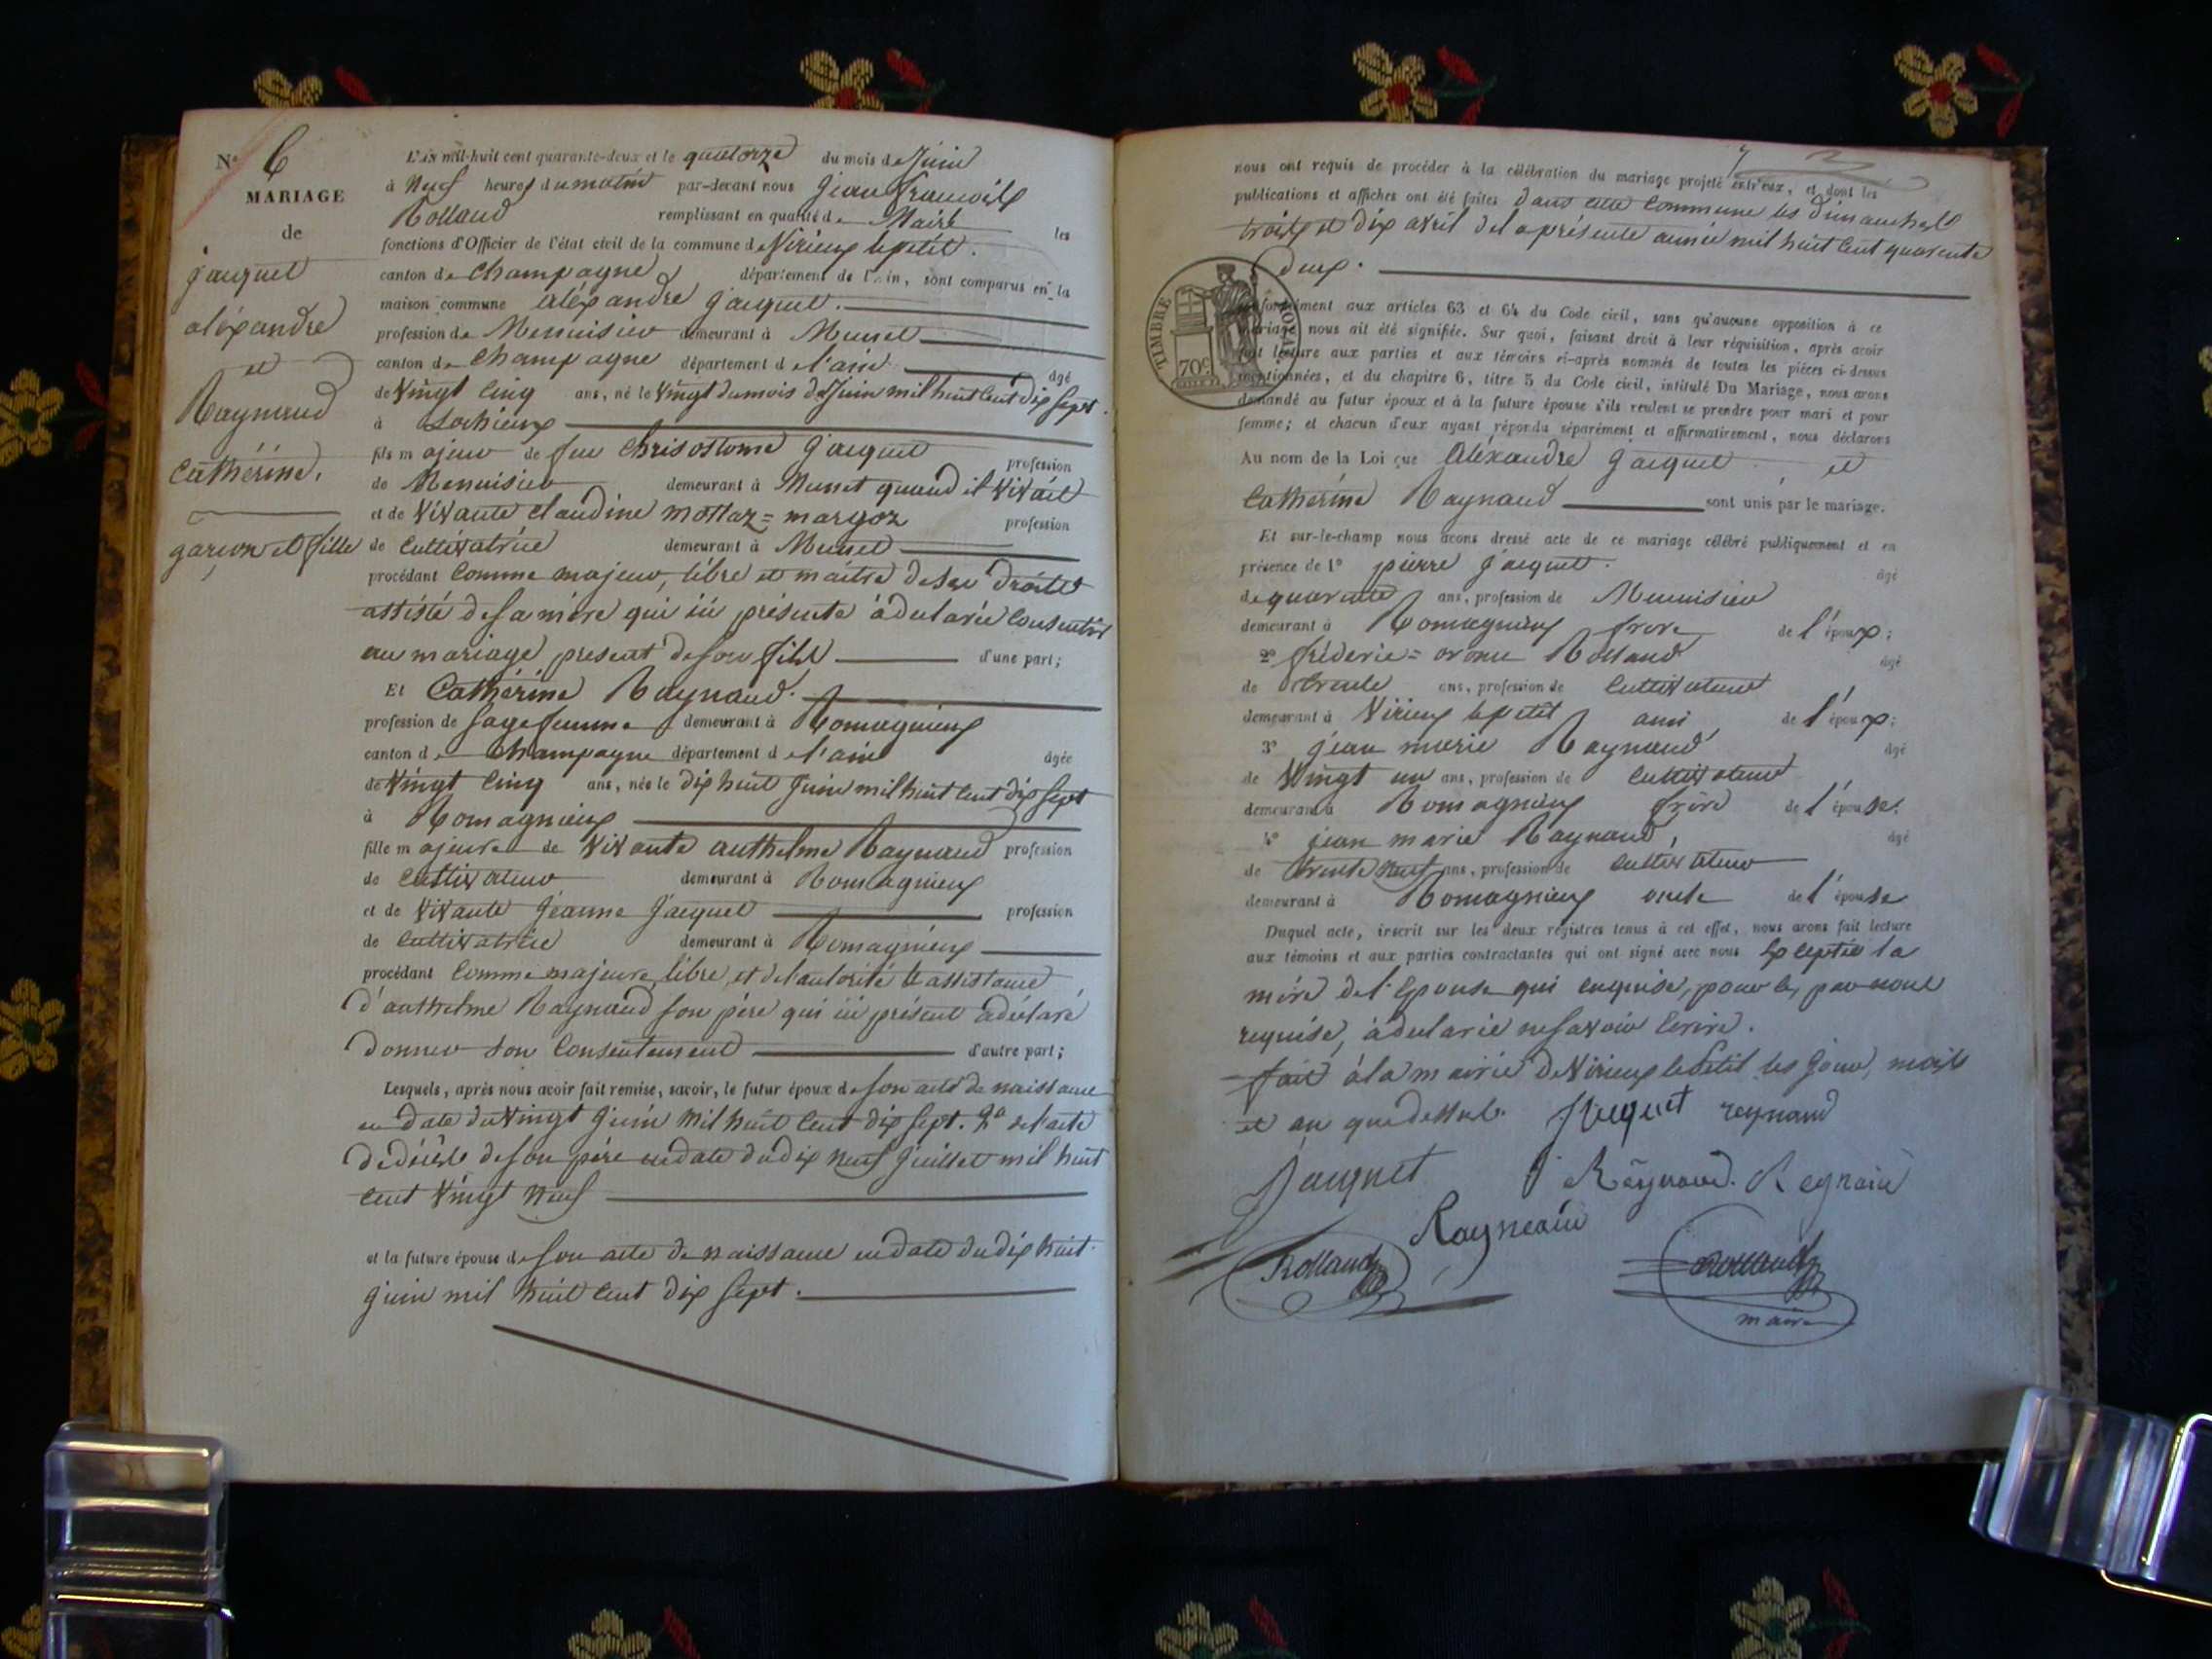 N° 6
MARIAGE
de
jacquet
aléxandre
et
Raynaud
Cathérine,
garçon et fille
L'an mil-huit cent quarante-deux et le quatorze du mois de Juin
à Neuf heures du matin par-devant nous Jean François
Rolland remplissant en qualité de Maire les
fonctions d'Officier de l'état civil de la commune de Virieux le petit.
canton de Champagne département de l'Ain, sont comparus en la
maison commune aléxandre jacquet.
profession de Menuisier demeurant à Munet
canton de Champagne département d e l'ain âgé
de Vingt Cinq ans, né le Vingt du mois de Juin mil huit Cent dix Sept.
à Lochieux
fils m ajeur de feu Chrisostome jacquet profession
de Menuisier demeurant à Munet quand il Vivait
et de Vivante Claudine mottaz = margoz profession
de Cultivatrice demeurant à Munet
procédant Comme majeur, libre et maître de ses droits
assisté de sa mère qui ici présente à déclarée Consentir
au mariage présent de son fils d'une part;
Et Cathérine Raynaud.
profession de Sage femme demeurant à Romagnieux
canton d e Champagne département d e l'ain âgée
de Vingt Cinq ans, née le dix huit Juin mil huit Cent dix Sept
à Romagnieux
fille m ajeure de Vivante anthelme Raynaud profession
de Cultivateur demeurant à Romagnieux
et de Vivante Jeanne Jacquet profession
de Cultivatrice demeurant à Romagnieux
procédant Comme majeure, libre, et de l'autorité & assistance
d'anthelme Raynaud son père qui ici présent a déclaré
donner son Consentement d'autre part;
Lesquels, après nous avoir fait remise, savoir, le futur époux de son acte de naissance
en date du Vingt Juin Mil huit Cent dix Sept. 2° de l'acte
de décès de son père en date du dix neuf Juillet mil huit
Cent Vingt Neuf
et la future épouse de son acte de naissance en date du dix huit
juin mil huit Cent dix Sept.
7
nous ont requis de procéder à la célébration du mariage projeté entr'eux, et dont les
publications et affiches ont été faites dans cette Commune les dimanches
trois et dix avril de la présente année mil huit Cent quarente
deux.
TIMBRE ROYAL
70c.
conformément aux articles 63 et 64 du Code civil, sans qu'aucune opposition à ce
mariage nous ait été signifiée. Sur quoi, faisant droit à leur réquisition, après avoir
fait lecture aux parties et aux témoins ci-après nommés de toutes les pièces ci-dessus
mentionnées, et du chapitre 6, titre 5 du Code civil, intitulé Du Mariage, nous avons
demandé au futur époux et à la future épouse s'ils veulent se prendre pour mari et pour
femme; et chacun d'eux ayant répondu séparément et affirmativement, nous déclarons
Au nom de la Loi que Aléxandre Jacquet et
Cathérine Raynaud sont unis par le mariage.
Et sur-le-champ nous avons dressé acte de ce mariage célébré publiquement et en
présence de 1° pierre Jacquet. âgé
de quarante ans, profession de Menuisier
demeurant à Romagnieux frère de l'époux;
2° fréderic = Rolland âgé
de trente ans, profession de Cultivateur
demeurant à Virieux le petit ami de l'époux;
3° jean marie Raynaud âgé
de Vingt un ans, profession de Cultivateur
demeurant à Romagnieux frère de l'épouse;
4° jean marie Raynaud, âgé
de trente neuf ans, profession de Cultivateur
demeurant à Romagnieux oncle de l'épouse
Duquel acte, inscrit sur les deux régistres tenus à cet effet, nous avons fait lecture
aux témoins et aux parties contractantes qui ont signé avec nous Exceptée la
mère de l'Epouse qui enquise, pour ce, par nous
requise, à déclarée ne savoir Ecrire.
fait à la mairie de Virieux le Petit les jour, mois
et an que dessus. Jacquet reynaud
Jacquet Réynaud. Regnaud
Rayneaud
Rolland Rolland
maire